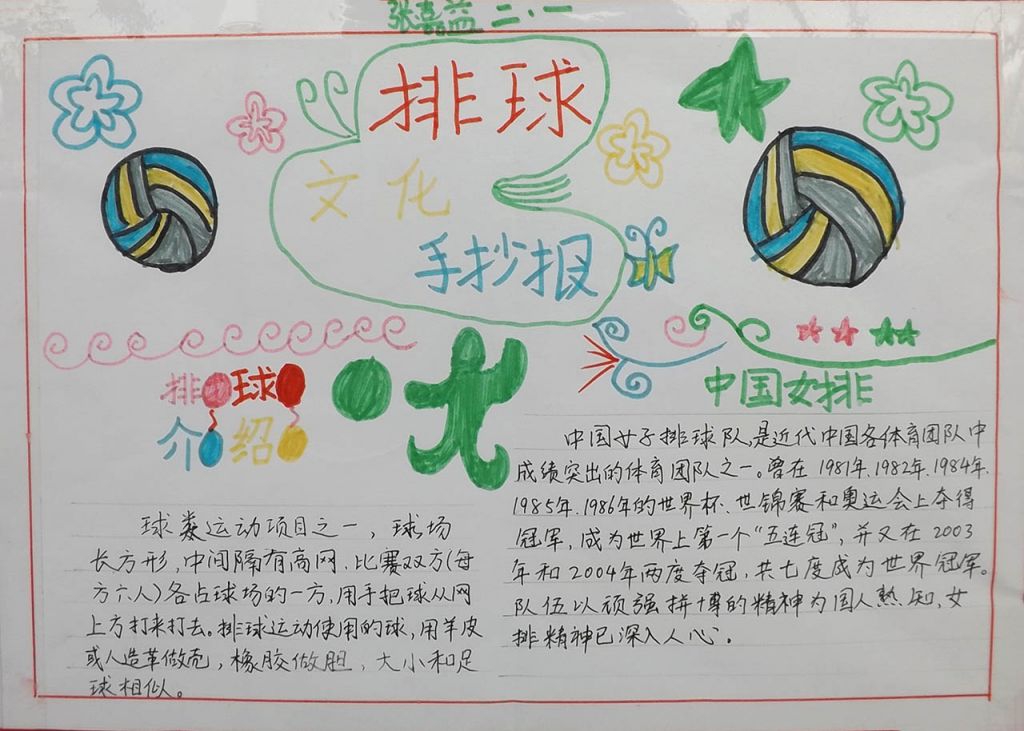 张嘉益 二、一
排球
文化
手抄报
排球
介绍
球类运动项目之一，球场
长方形，中间隔有高网．比赛双方(每
方六人)各占球场的一方，用手把球从网
上方打来打去。排球运动使用的球，用羊皮
或人造革做壳，橡胶做胆，大小和足
球相似。
中国女排
中国女子排球队，是近代中国各体育团队中
成绩突出的体育团队之一。曾在1981年．1982年．1984年．
1985年．1986年的世界杯、世锦赛和奥运会上夺得
冠军，成为世界上第一个“五连冠”，并又在2003
年和2004年两度夺冠，共七度成为世界冠军。
队伍以顽强拼博的精神为国人熟知，女
排精神已深入人心．